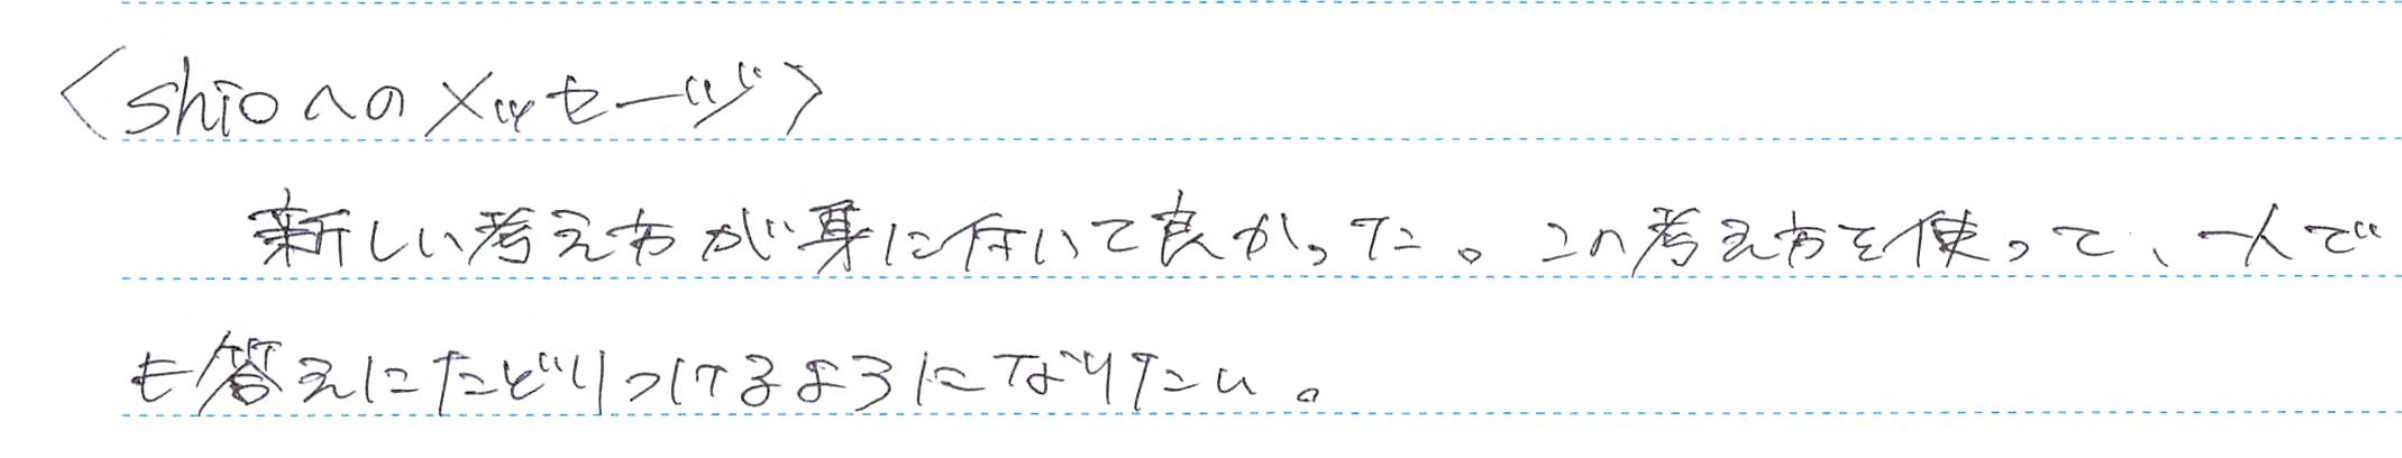 〈shioへのメッセージ〉
新しい考え方が身に付いて良かった。この考え方を使って、一人で
も答えにたどりつけるようになりたい。